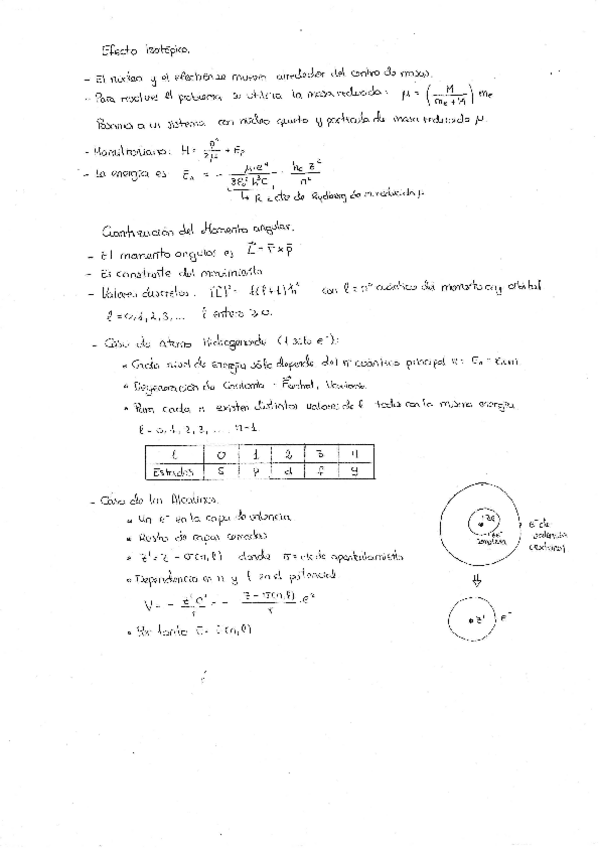 Efecto isotópico.
- El núcleo y el electrón se mueven alrededor del centro de masas.
- Para resolver el problema se utiliza la masa reducida: μ = (M / (m_e + M)) m_e
Pasamos a un sistema con núcleo quieto y partícula de masa reducida μ.
- Hamiltoniano: H = p² / 2μ + E_p
- La energía es E_n = -
↳ R cte de Rydberg de m reducida μ
Cuantización del Momento angular.
- El momento angular es L = r × p
- Es constante del movimiento
- Valores discretos: |L|² = ℓ(ℓ+1)ħ² con ℓ = nº cuántico del momento ang. orbital
ℓ = 0, 1, 2, 3, ... ℓ entero ≥ 0.
- Caso de átomo Hidrogenoide (1 solo e⁻):
• Cada nivel de energía sólo depende del nº cuántico principal n:
• Degeneración de Coulomb
• Para cada n existen distintos valores de ℓ todos con la misma energía
ℓ = 0, 1, 2, 3, ... n-1
ℓ 0 1 2 3 4
Estados s p d f g
- Caso de los Alcalinos.
• Un e⁻ en la capa de valencia
• Resto de capas cerradas
• Z' = Z - σ(n,ℓ) donde σ = cte de apantallamiento
• Dependencia en n y ℓ en el potencial:
V = - Z'e² / r = - (Z - σ(n,ℓ)) / r · e²
• Por tanto E = E(n,ℓ)
e⁻ de
valencia
(externo)
⇓
Z' e⁻